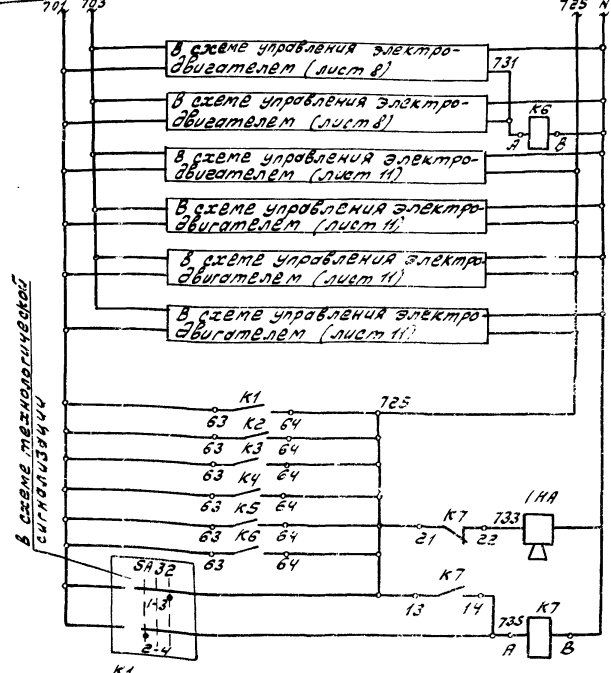 701 703 725 N
В схеме управления электро-
двигателем (лист 8)
731
В схеме управления электро-
двигателем (лист 8)
К6
А В
В схеме управления электро-
двигателем (лист 11)
В схеме управления электро-
двигателем (лист 11)
В схеме управления электро-
двигателем (лист 11)
В схеме управления электро-
двигателем (лист 11)
В схеме технологической
сигнализации
К1 725
63 К2 64
63 К3 64
63 К4 64
63 К5 64
63 К6 64
63 64
К7 733 1НА
21 22
SA32
1-3
2-4
К7
13 14
735 К7
А В
К1